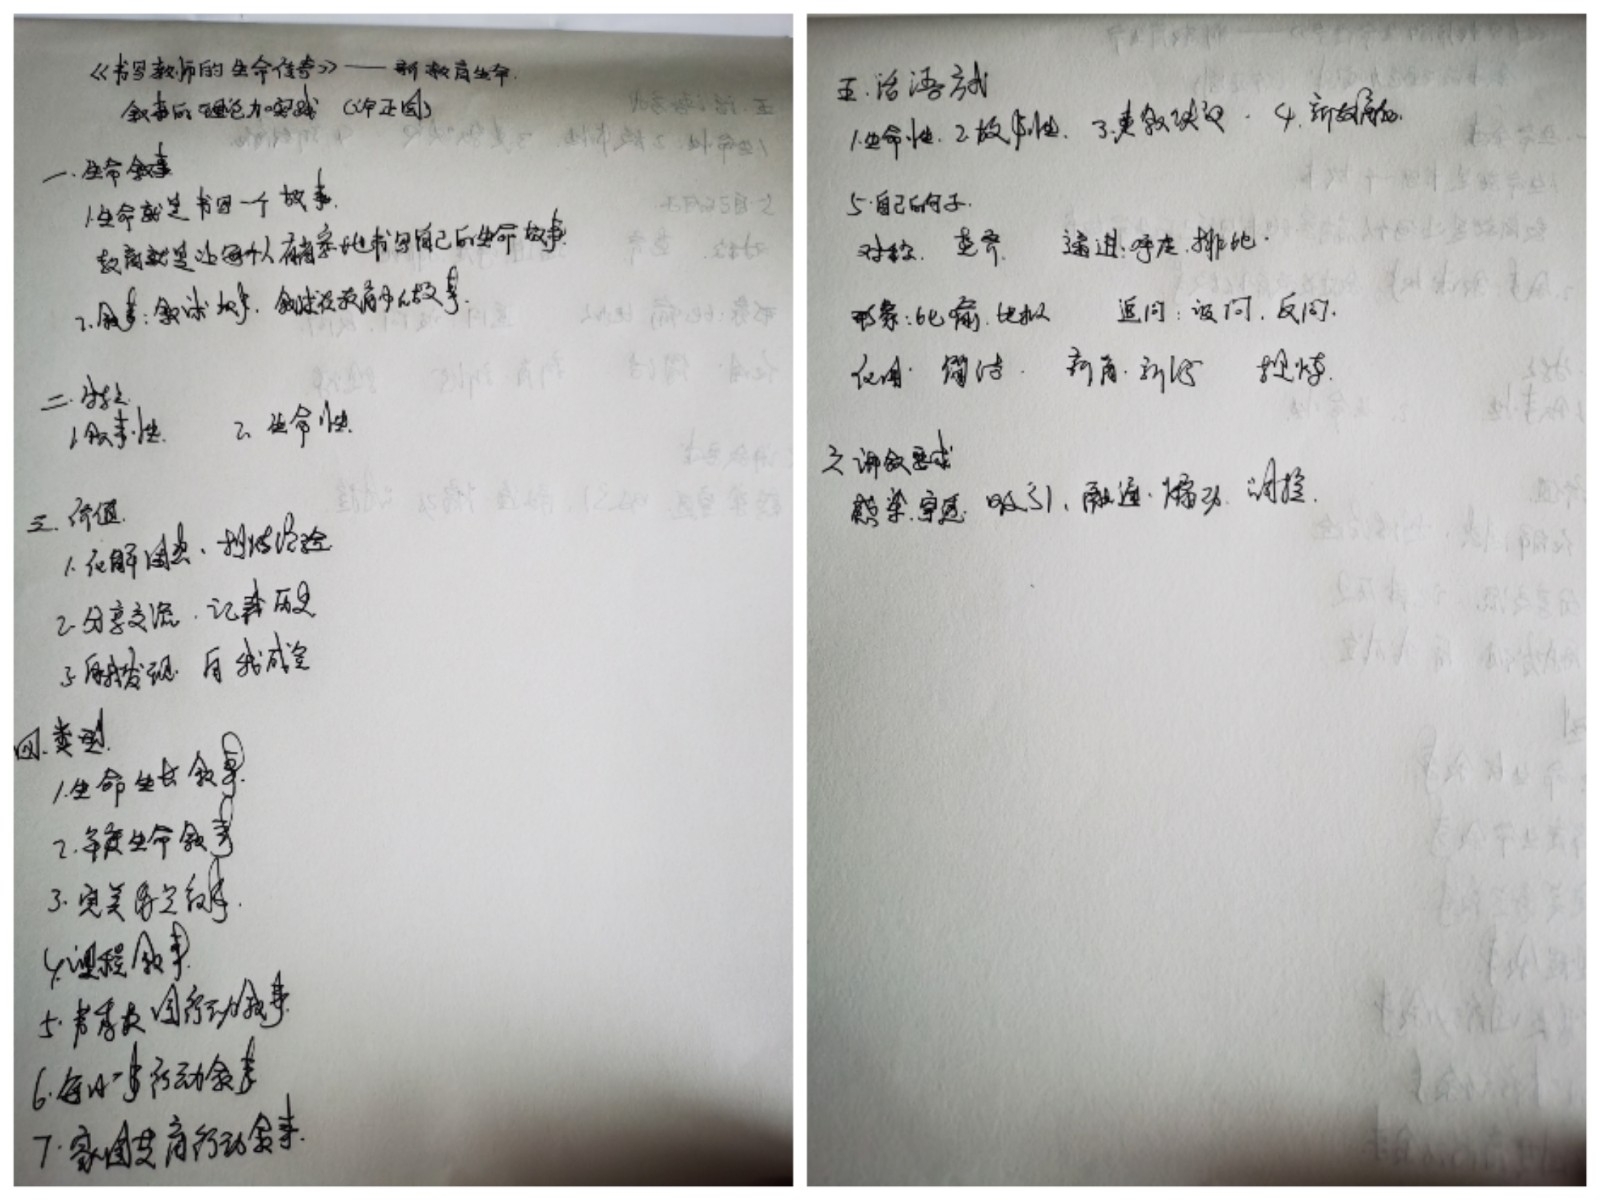 《书写教师的生命传奇》——新教育生命
叙事的理论和实践 (许正国)
一.生命叙事
1.生命就是书写一个故事.
教育就是让每个人有意义地书写自己的生命故事.
2.叙事:叙述故事.叙述教育的故事.
二.
1.叙事性. 2.生命性.
三.价值.
1.化解困惑、提炼经验
2.分享交流.记录历史
3.自我发现 自我成全
四.类型.
1.生命生长叙事.
2.年度生命叙事
3.完美教室叙事.
4.课程叙事.
5.书香校园行动叙事.
6.每月一事行动叙事
7.家园共育行动叙事.
五.话语方式
1.生命性.2.故事性. 3. 4.新教育.
5.自己的句子.
对称. 递进.呼应.排比.
形象:比喻.比拟 追问:设问.反问.
化用. 简洁. 提炼.
六 讲叙要求
感染.穿透.吸引、 煽动.调控.